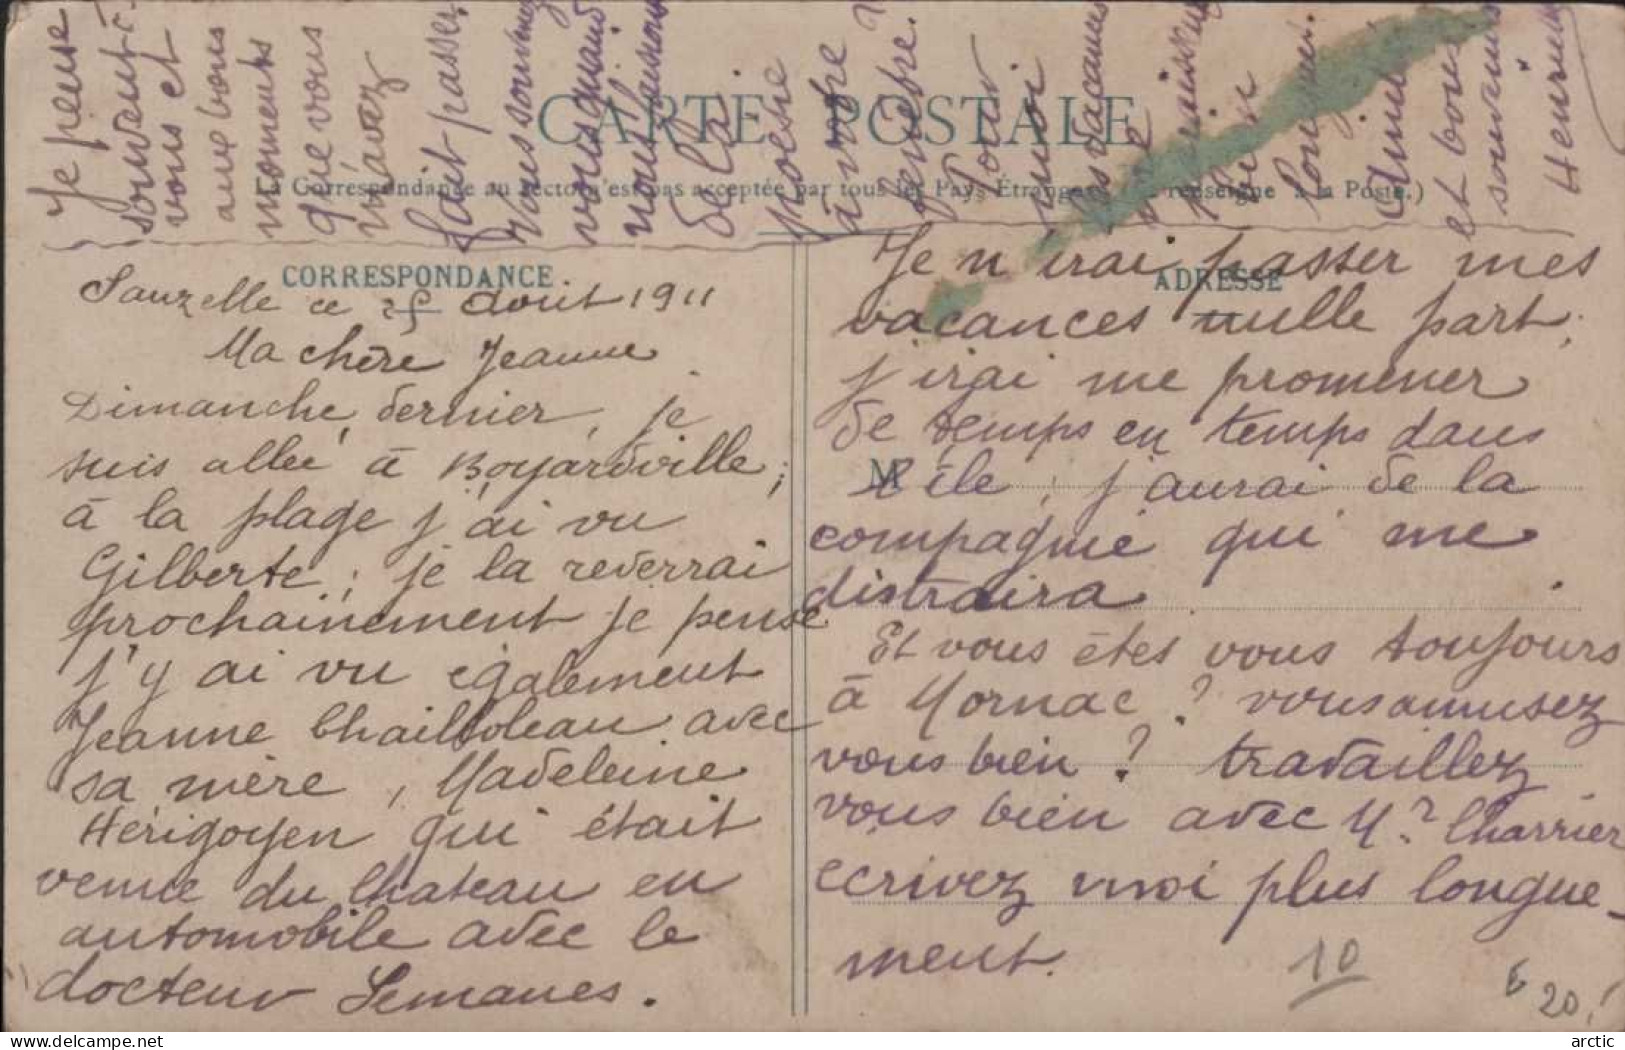 CARTE POSTALE
La Correspondance au recto n'est pas acceptée par tous les Pays Étrangers. (Se renseigne à la Poste.)
CORRESPONDANCE
Sauzelle ce 25 août 1911
Ma chère Jeanne
Dimanche dernier, je
suis allée à Boyardville ;
à la plage j'ai vu
Gilberte ; je la reverrai
prochainement je pense
j'y ai vu également
Jeanne Chailloleau avec
sa mère, Madeleine
Hérigoyen qui était
venue du Chateau en
automobile avec le
docteur Semanes.
ADRESSE
M
Je n'irai passer mes
vacances nulle part,
j'irai me promener
de temps en temps dans
l'île ; j'aurai de la
compagnie qui me
distraira.
Et vous êtes vous toujours
à Mornac ? vous amusez
vous bien ? travaillez
vous bien avec Mr Charrier
ecrivez moi plus longue-
ment.
Je pense
souvent à
vous et
aux bons
moments
que vous
m'avez
fait passer.
Vous souvenez
vous quand
nous faisions
de la
poësie
à votre
fenêtre.
Pour
moi
les vacances
bien
longues.
Amitiés
et bons
souvenirs
Henriette
10
6
20!
arctic